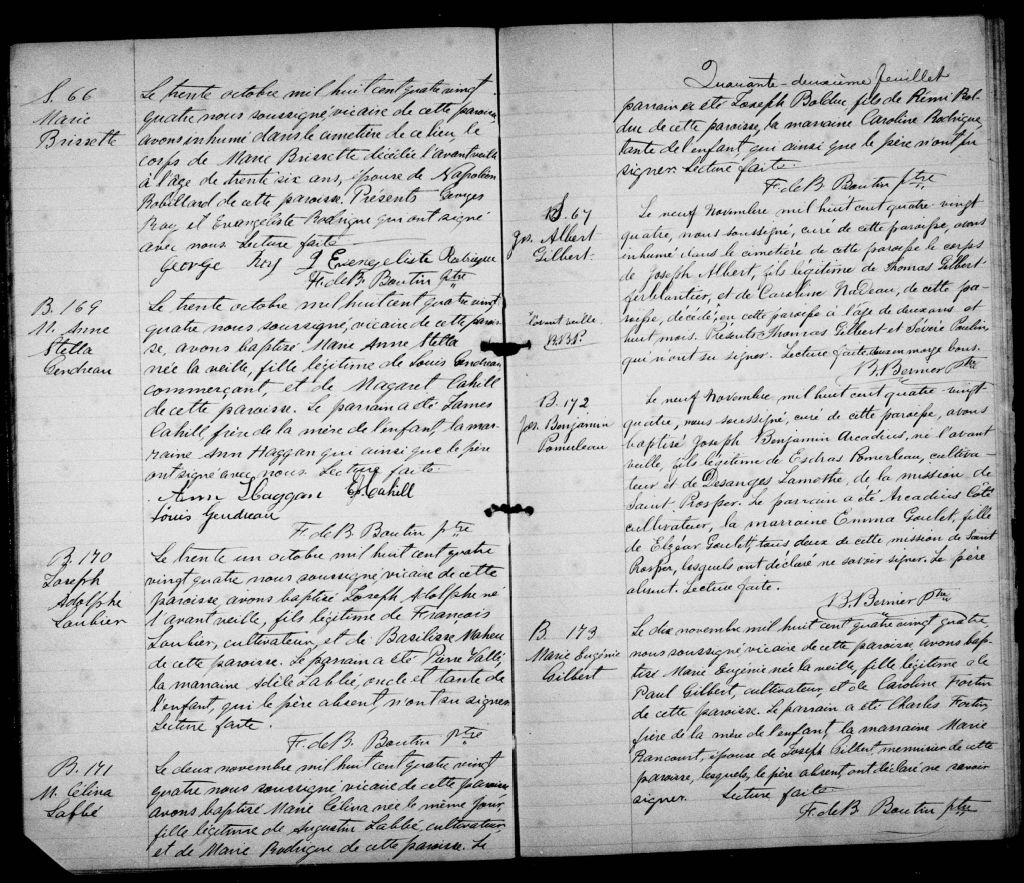 S. 66
Marie
Brissette
Le trente octobre mil huit cent quatre vingt
quatre nous soussigné, vicaire de cette paroisse,
avons inhumé dans le cimetière de ce lieu, le
corps de Marie Brissette décédée l'avant veille
à l'âge de trente six ans, épouse de Napoléon
Robillard de cette paroisse. Présents Georges
Roy et Evangeliste Rodrigue qui ont signé
avec nous Lecture faite
George Roy J Evengeliste Rodrigue
F. de B. Boutin ptre
B. 169
M. Anne
Stella
Gendreau
Le trente octobre mil huit cent quatre vingt
quatre nous soussigné, vicaire de cette parois-
se, avons baptisé Marie Anne Stella
née la veille, fille légitime de Louis Gendreau
commerçant, et de Magaret Cahill
de cette paroisse. Le parrain a été James
Cahill, frère de la mère de l'enfant, la mar-
raine Ann Haggan qui ainsi que le père
ont signé avec nous. Lecture faite.
Ann Haggan Cahill
Louis Gendreau
F. de B. Boutin ptre
B. 170
Joseph
Adolphe
Loubier
Le trente un octobre mil huit cent quatre
vingt quatre nous soussigné vicaire de cette
paroisse, avons baptisé Joseph Adolphe né
l'avant veille, fils légitime de François
Loubier, cultivateur, et de Basilisse Maheu
de cette paroisse. Le parrain a été Pierre Vallé,
la marraine Adèle Labbé, oncle et tante de
l'enfant, qui le père absent, n'ont su signer
Lecture faite.
F. de B. Boutin ptre
B. 171
M. Célina
Labbé
Le deux novembre mil huit cent quatre vingt
quatre nous soussigné, vicaire de cette paroisse
avons baptisé Marie Celina née le même jour,
fille légitime de Augustin Labbé, cultivateur
et de Marie Rodrigue de cette paroisse. Le
Quarante-deuxième feuillet
parrain a été Joseph Bolduc fils de Rémi Bol-
duc de cette paroisse, la marraine Caroline Rodrigue,
tante de l'enfant, qui ainsi que le père n'ont su
signer. Lecture faite.
F. de B. Boutin ptre
S. 67
Jos. Albert
Gilbert
Le neuf Novembre mil huit cent quatre-vingt
quatre, nous soussigné, curé de cette paroisse, avons
inhumé dans le cimetière de cette paroisse le corps
de Joseph Albert, fils légitime de Thomas Gilbert
ferblantier, et de Caroline Nadeau, de cette pa-
roisse, décédé, en cette paroisse à l'âge de deux ans et
huit mois. Présents Thomas Gilbert et Poulin,
qui n'ont su signer. Lecture faite. deux en marge bons.
l'avant veille
B. Bernier Ptre
B. 172
Jos. Benjamin
Pomerleau
Le neuf Novembre mil huit cent quatre vingt
quatre, nous soussigné, curé de cette paroisse, avons
baptisé Joseph Benjamin Arcadius, né l'avant
veille, fils légitime de Esdras Pomerleau, cultiva-
teur et de Desanges Lamothe, de la mission de
Saint Prosper. Le parrain a été Arcadius Côté
cultivateur, la marraine Emma Goulet, fille
de Elgéar Goulet, tous deux de cette mission de Saint
Prosper, lesquels ont déclaré ne savoir signer. Le père
absent. Lecture faite.
B. Bernier Ptre
B 173
Marie Eugénie
Gilbert
Le dix novembre mil huit cent quatre vingt quatre,
nous soussigné vicaire de cette paroisse, avons bap-
tisé Marie Eugénie née la veille, fille légitime de
Paul Gilbert, cultivateur, et de Caroline Fortin
de cette paroisse. Le parrain a été Charles Fortin,
frère de la mère de l'enfant, la marraine Marie
Rancourt, épouse de Joseph Gilbert, menuisier de cette
paroisse, lesquels, le père absent, ont déclaré ne savoir
signer. Lecture faite
F. de B Boutin ptre